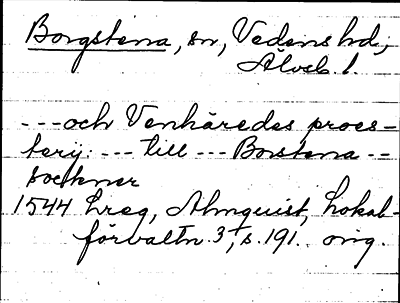 Borgstena, sn, Vedens hd,
Älvsb. l.
---och Venhäredes proes-
terij: --- till --- Borstena --
sockner
1544 hreg, Almquist, Lokal-
förvaltn. 3, s. 191. orig.